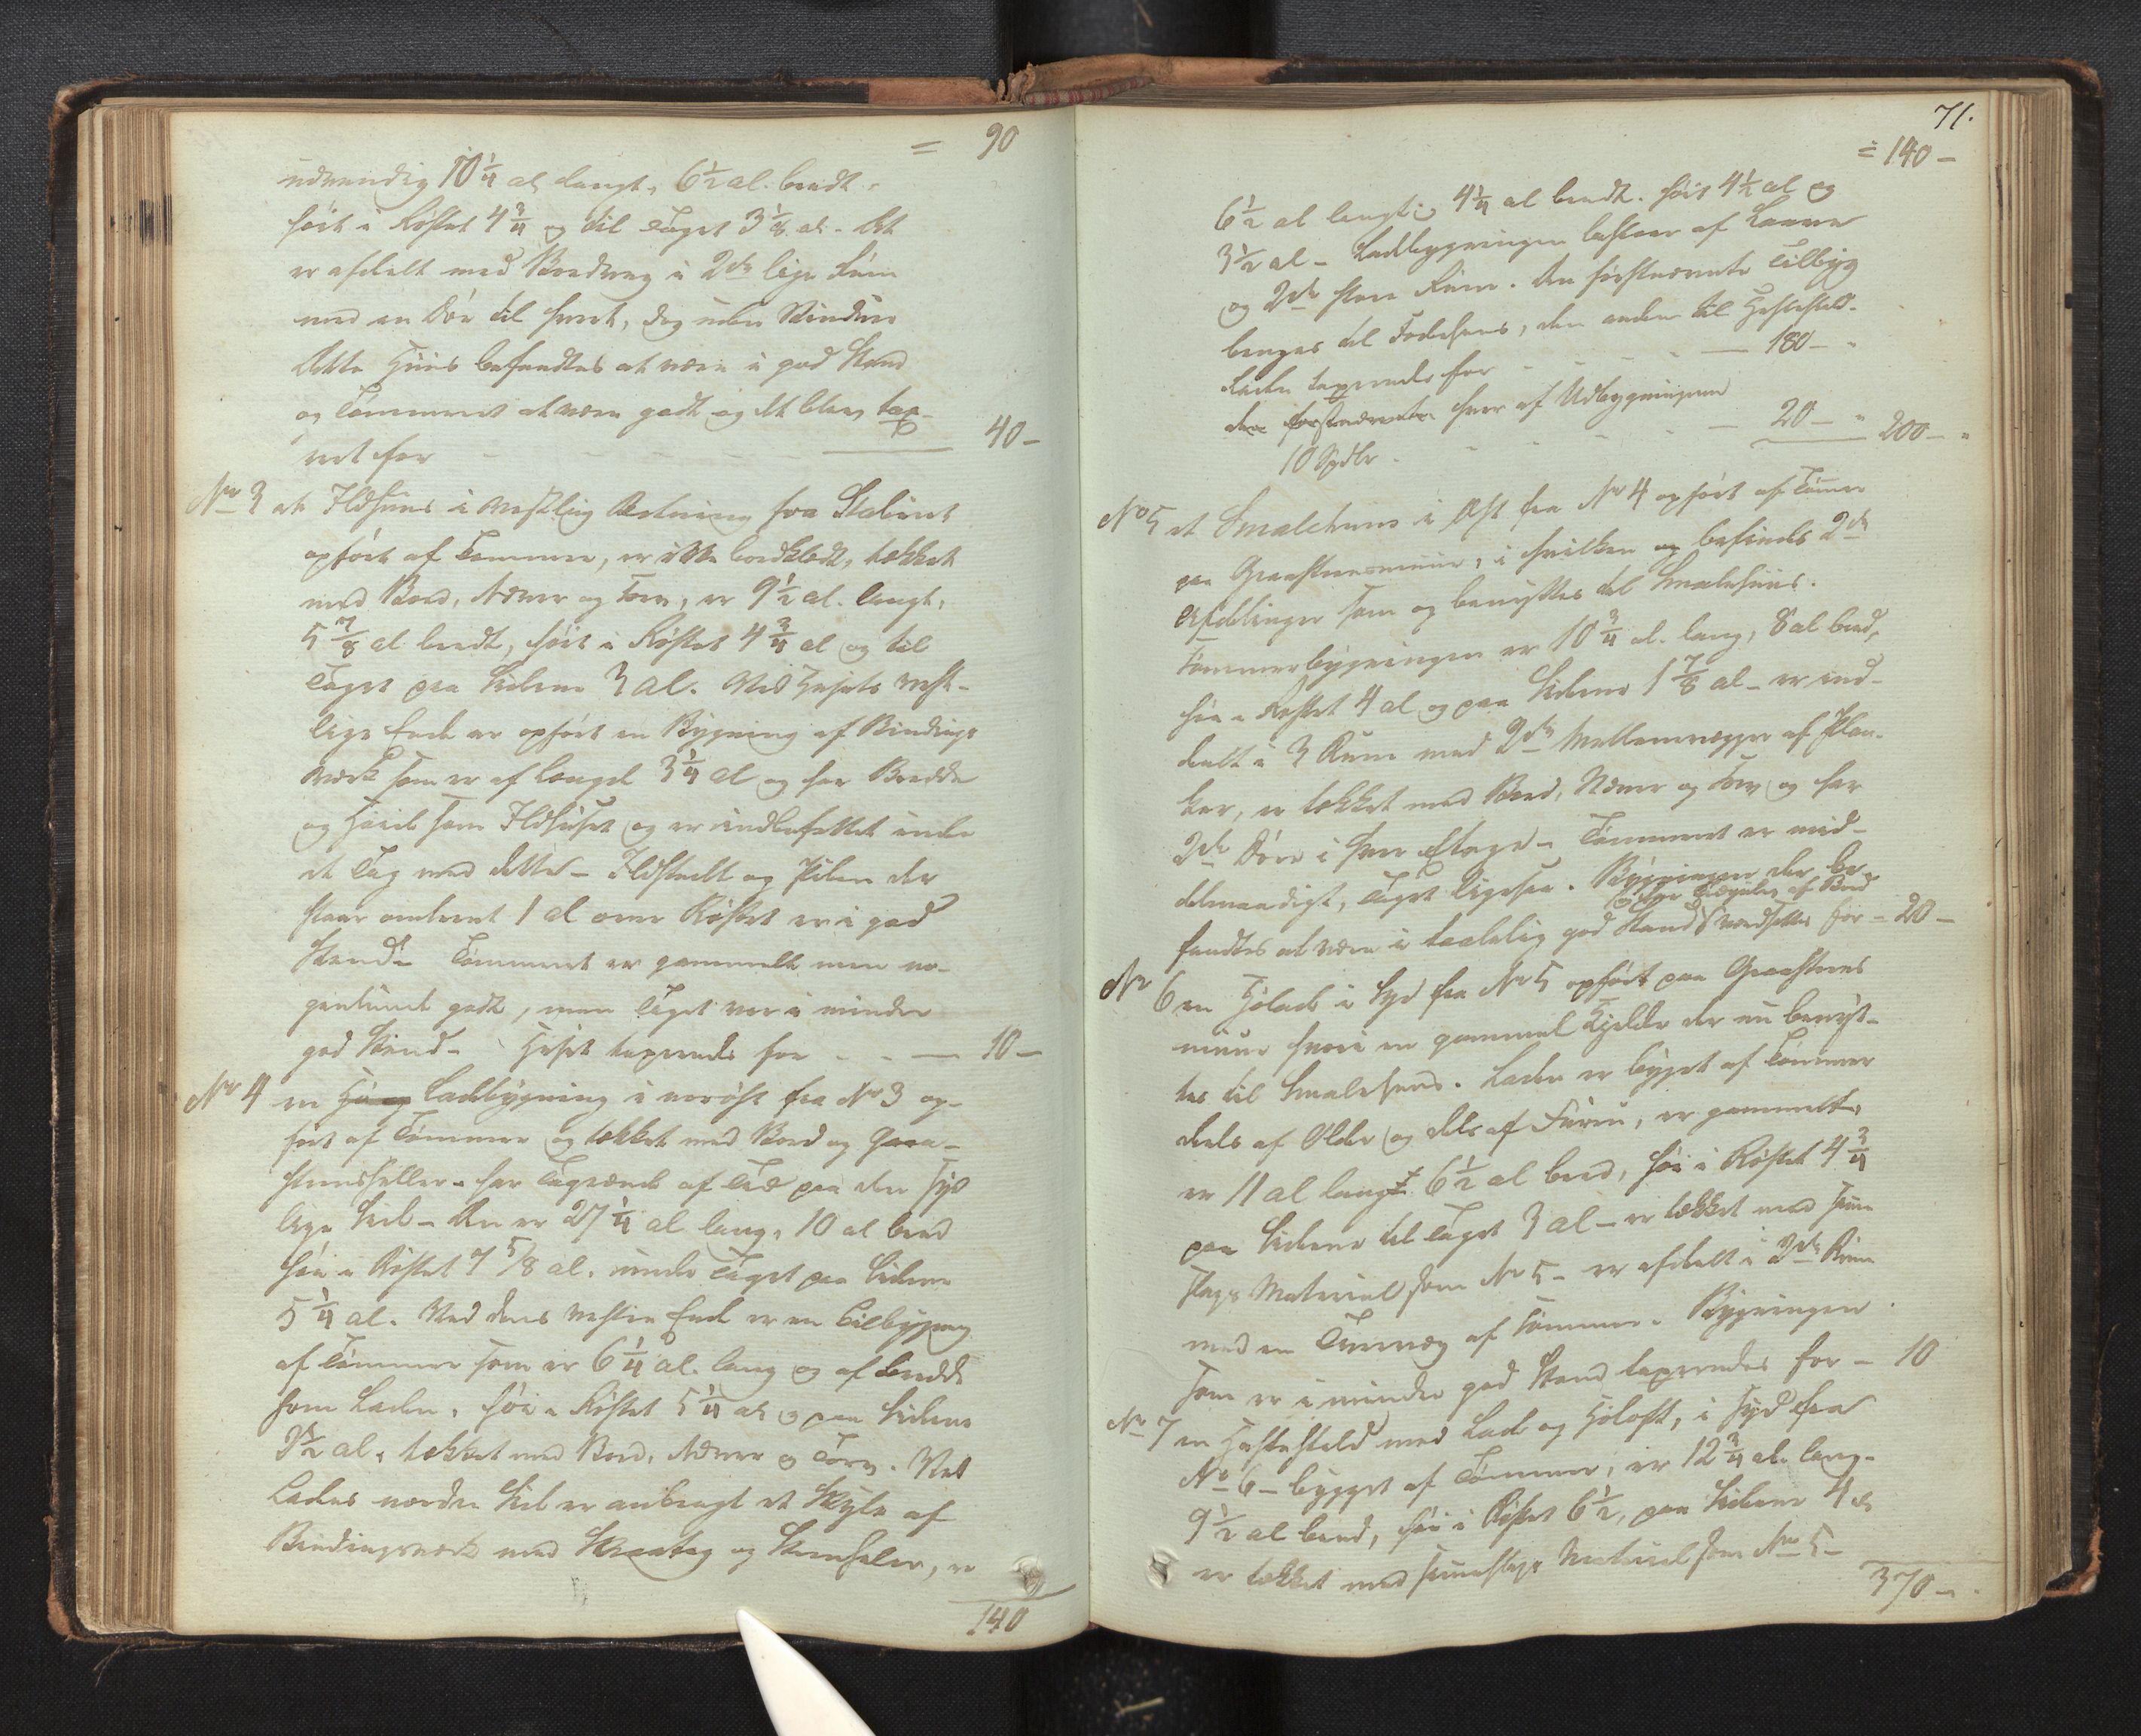 = 90
udvendig 10 1/4 al langt, 6 1/2 al. bredt,
høit i Røstet 4 3/4 og til Taget 3 1/8 al. Det
er afdelt med Bordvæg i 2de lige Rum
med en Dør til hvert, dog uden Vinduer
Dette Huus befandtes at være i god Stand
og Tømmeret at være godt og det blev tax-
eret for - - - - 40 -
No 3 et Ildhuus i vestlig Retning fra Staburet
opført af Tømmer, er ikke bordklædt, tækket
med Bord, Næver og Torv, er 9 1/2 al. langt,
5 7/8 al bredt, høit i Røstet 4 3/4 al og til
Taget paa Siderne 3 al. Ved Husets vest-
lige Ende er opført en Bygning af Bindings
værk som er af Længde 3 1/4 al og har Bredde
og Høide som Ildhuset og er indbefattet under
et Tag med dette - Ildstedet og Piben der
staar omtrent 1 al over Røstet er i god
Stand - Tømmeret er gammelt men no-
genlunde godt, men Taget var i mindre
god Stand - Huset taxeredes for - - - 10 -
No 4 en Ladebygning i nordøst fra No 3 op-
ført af Tømmer og tækket med Bord og Graa-
steensheller - har Tagrænde af Træ paa den syd
lige Side - Den er 27 1/4 al lang, 10 al bred
høi i Røstet 7 5/8 al. under Taget paa Siderne
5 1/4 al. Ved dens vestre Ende er en Tilbygning
af Tømmer som er 6 1/4 al. lang og af Bredde
som Laden, høi i Røstet 5 1/4 al og paa Siderne
2 1/2 al, tækket med Bord, Næver og Torv. Ved
Ladens nordre Side er anbragt et Skyle af
Bindingsværk med Skraatag og Steenheler, er
140
71.
= 140 -
6 1/2 al langt og 4 1/4 al bredt. høit 4 1/2 al og
3 1/2 al - Ladebygningen bestaar af Laave
og 2de store Rum. Den førstnævnte Tilbyg
bruges til Fodehuus, den anden til Hestestald.
Laden taxeredes for - - - 180 - "
den førstnævnte hver af Udbygningerne
10 Spdlr - - - - 20 - " 200 - "
No 5 et Smalehuus i Øst fra No 4 opført af Tømmer
paa Graasteensmuur, i hvilken og befindes 2de
Afdelinger som og benyttes til Smalehuus.
Tømmerbygningen er 10 3/4 al. lang, 8 al bred,
høi i Røstet 4 al og paa Siderne 1 7/8 al - er ind-
deelt i 3 Rum med 2de Mellemvægge af Plan-
ker, er tækket med Bord, Næver og Torv og har
2de Døre i hver Etage - Tømmeret er mid-
delmaadigt, Taget ligesaa. Bygningen der be-
af Bord
fandtes at være i taalelig god Stand værdsættes for - 20 -
No 6 en Høelade i Syd fra No 5 opført paa Graasteens
muur hvori en gammel Kjelder der nu benyt-
tes til Smalehuus. Laden er bygget af Tømmer
deels af Older og dels af Furu, er gammelt,
er 11 al langt 6 1/2 al bred, høi i Røstet 4 3/4
paa Siderne til Taget 3 al - er tækket med samme
slags Material som No 5 - er afdeelt i 2de Rum
med en Tværvæg af Tømmer. Bygningen
som er i mindre god Stand taxeredes for - 10
No 7 en Hestestald med Lade og Høloft, i Syd fra
No 6 - bygget af Tømmer, er 12 3/4 al. lang.
9 1/2 al bred, høi i Røstet 6 1/2, paa Siderne 4 al
er tækket med samme slags Material som No 5 -
370 -